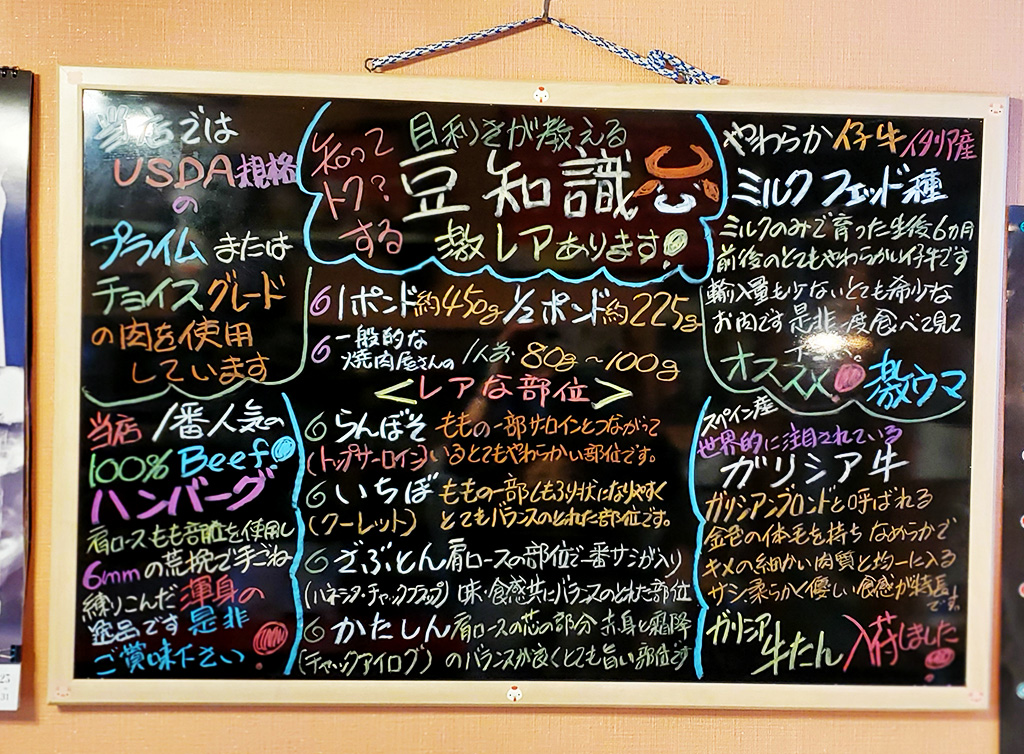 当店では
USDA規格
の
プライムまたは
チョイスグレード
の肉を使用
しています
知って
トク?
する
目利きが教える
豆知識
激レアあります!
1ポンド約450g 1/2ポンド約225g
一般的な
焼肉屋さんの 1人前 80g~100g
<レアな部位>
らんぼそ ももの一部サーロインとつながって
(トップサーロイン) いるとてもやわらかい部位です。
いちぼ ももの一部しもふり状になりやすく
(クーレット) とてもバランスのとれた部位です。
ざぶとん 肩ロースの部位で一番サシが入り
(ハネシタ・チャックフラップ) 味・食感共にバランスのとれた部位
かたしん 肩ロースの芯の部分 赤身と霜降
(チャックアイログ) のバランスが良くとても旨い部位です
やわらか仔牛 イタリア産
ミルクフェッド種
ミルクのみで育った生後6ヵ月
前後のとてもやわらかい仔牛です
輸入量も少ないとても希少な
お肉です是非一度食べて見て
下さい。
オススメ 激ウマ
当店1番人気の
100% Beef
ハンバーグ
肩ロースもも部位を使用し
6mmの荒挽で手ごね
練りこんだ渾身の
逸品です是非
ご賞味下さい
スペイン産
世界的に注目されている
ガリシア牛
ガリシアンブロンドと呼ばれる
金色の体毛を持ちなめらかで
キメの細かい肉質と均一に入る
サシ、柔らかく優しい食感が特長
です。
ガリシア
牛たん 入荷しました